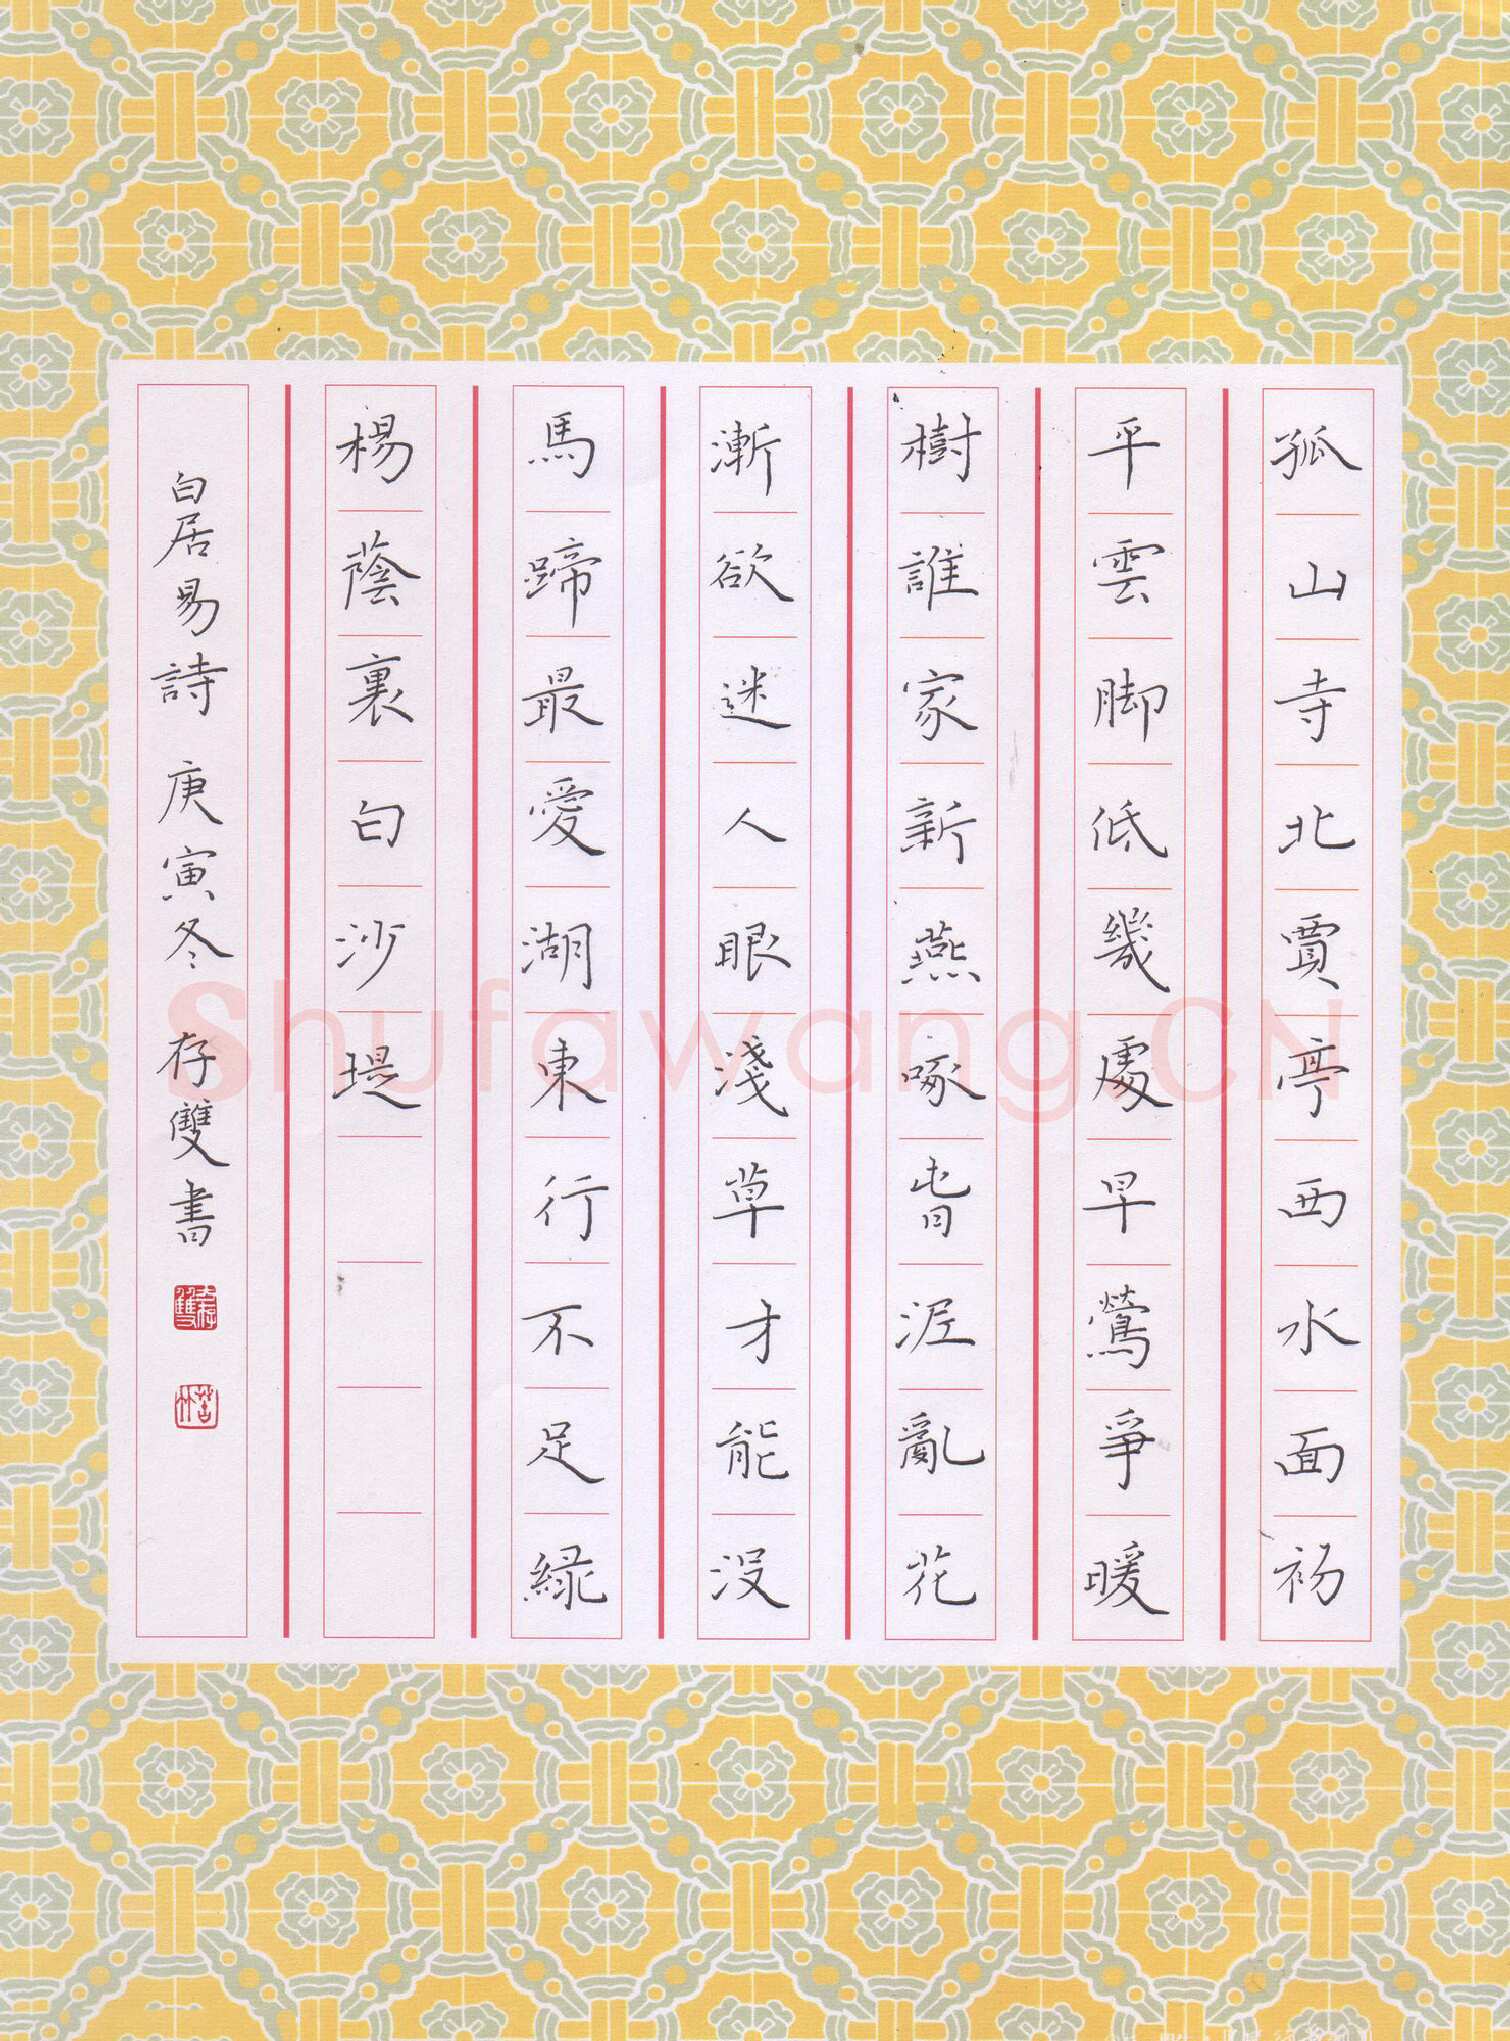 孤山寺北賈亭西水面初
平雲脚低幾處早鶯爭暖
樹誰家新燕啄春泥亂花
漸欲迷人眼淺草才能没
馬蹄最愛湖東行不足綠
楊蔭裏白沙堤
白居易詩 庚寅冬 存雙書
Shufawang.CN